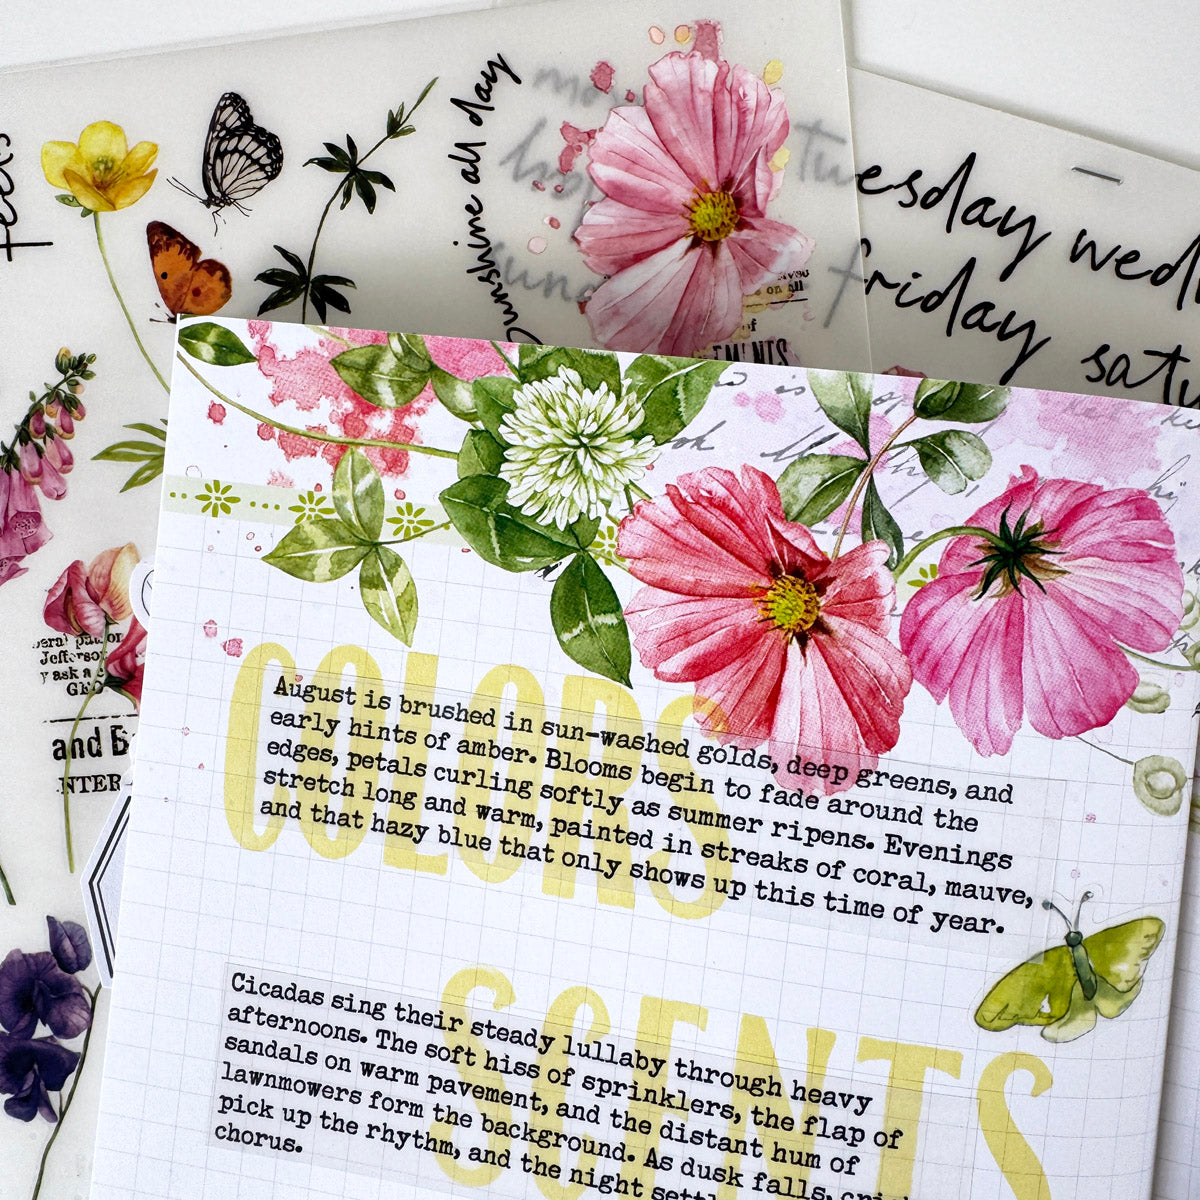 feels
Sunshine all day
tuesday wed
friday satu
sund
eral
Jefferso
y ask a
GEO
and B
INTER
of
EMENTS
on all
COLORS
August is brushed in sun-washed golds, deep greens, and
early hints of amber. Blooms begin to fade around the
edges, petals curling softly as summer ripens. Evenings
stretch long and warm, painted in streaks of coral, mauve,
and that hazy blue that only shows up this time of year.
SCENTS
Cicadas sing their steady lullaby through heavy
afternoons. The soft hiss of sprinklers, the flap of
sandals on warm pavement, and the distant hum of
lawnmowers form the background. As dusk falls, cri
pick up the rhythm, and the night settl
chorus.